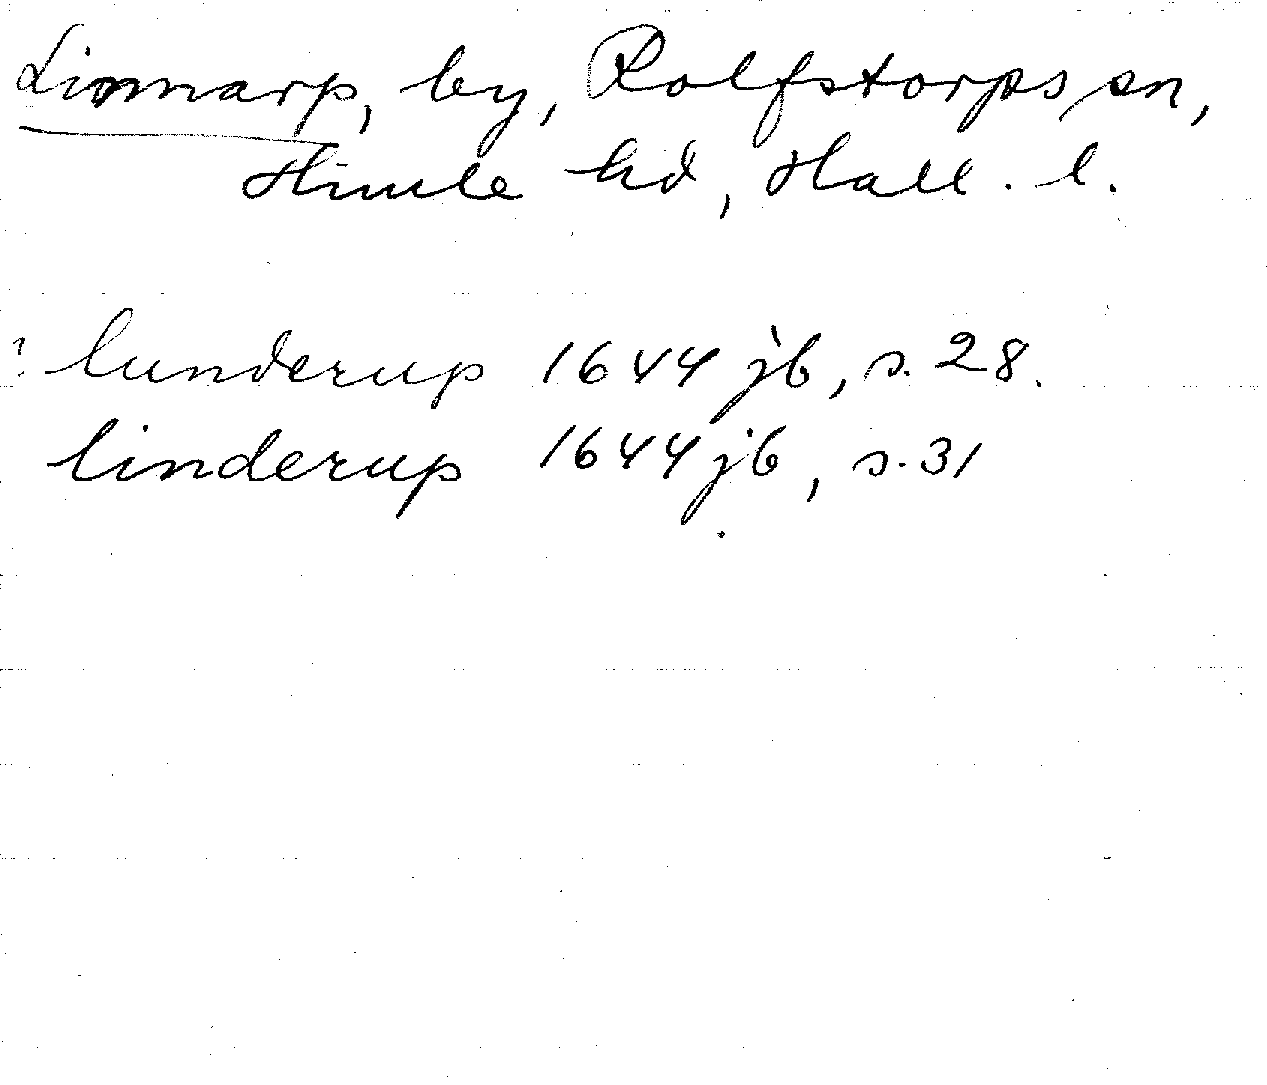 Linnarp, by, Rolfstorps sn,
Himle hd, Hall. l.
? lunderup 1644 jb, s. 28.
linderup 1644 jb, s. 31